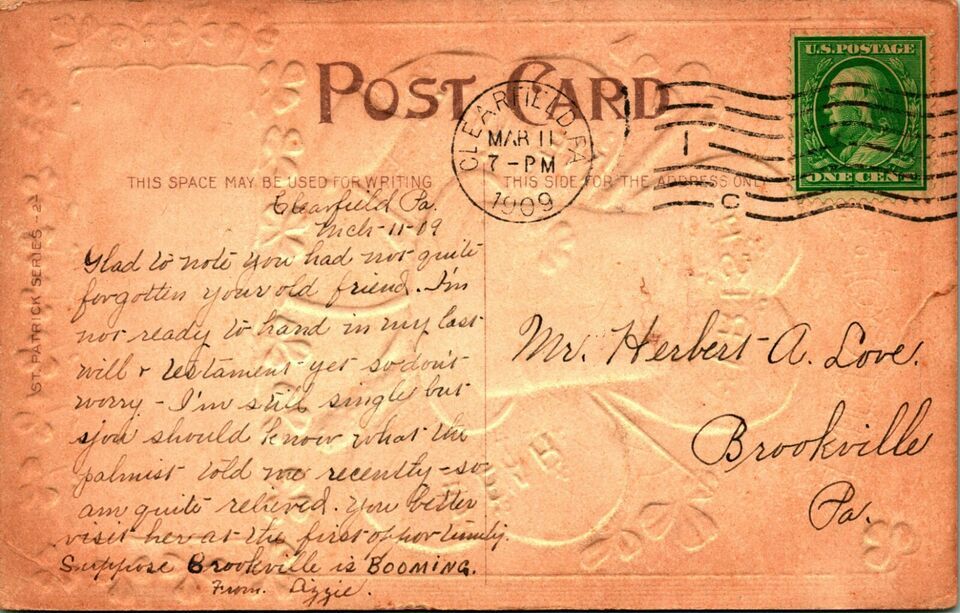 POST CARD
U.S. POSTAGE
ONE CENT
CLEARFIELD, PA
MAR 11
7-PM
1909
1
THIS SPACE MAY BE USED FOR WRITING
THIS SIDE FOR THE ADDRESS ONLY
ST. PATRICK SERIES - 2
Clearfield Pa.
Mch-11-09
Glad to note you had not quite
forgotten your old friend. I'm
not ready to hand in my last
will & testament yet so don't
worry - I'm still single but
you should know what the
palmist told me recently - so
am quite relieved. You better
visit her at the first opportunity.
Suppose Brookville is BOOMING.
From. Lizzie.
Mr. Herbert A. Love.
Brookville
Pa.